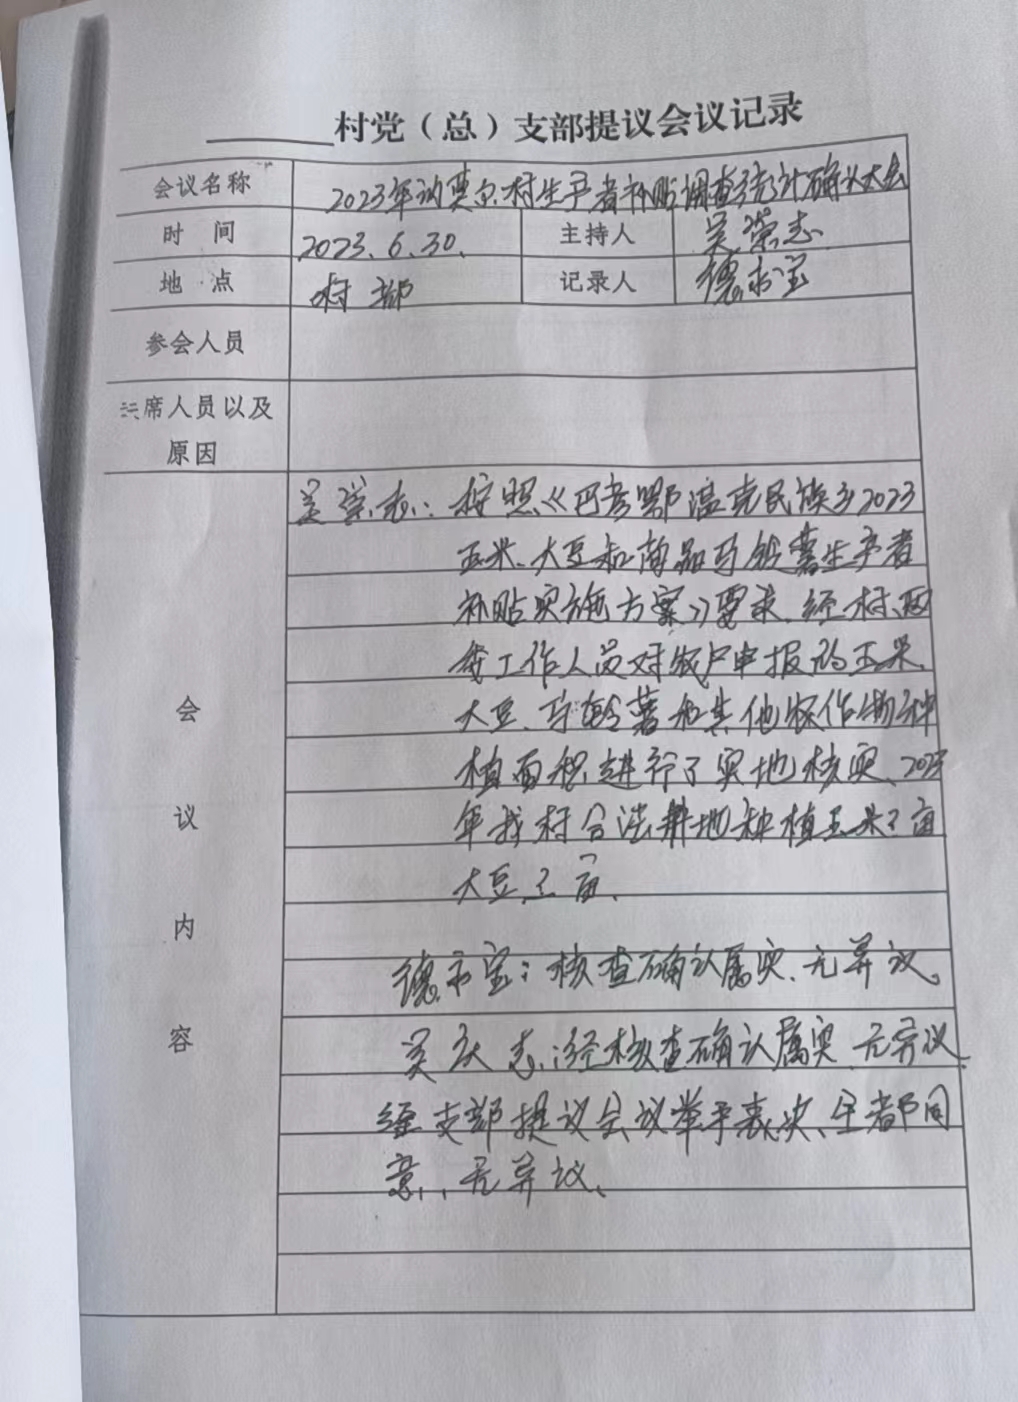 村党（总）支部提议会议记录
会议名称 2023年 村生产者补贴调查统计确认大会
时 间 2023.6.30. 主持人 吴荣志
地 点 村部 记录人 德宝
参会人员
席人员以及
原因
会议内容
吴荣志：按照《巴彦鄂温克民族乡2023
玉米、大豆和商品马铃薯生产者
补贴实施方案》要求、经村、两
委工作人员对农户申报的玉米、
大豆、马铃薯和其他农作物种
植面积进行了实地核实、2023
年我村合法耕地种植玉米 亩
大豆 亩、
德 宝：核查确认属实、无异议。
吴 志：经核查确认属实 无异议
经支部提议会议举手表决、全部同
意，无异议、